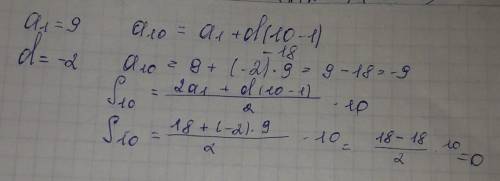 a₁ = 9
a₁₀ = a₁ + d(10-1)
d = -2
-18
a₁₀ = 9 + (-2) · 9 = 9 - 18 = -9
S₁₀ = (2a₁ + d(10-1))/2 · 10
S₁₀ = (18 + (-2) · 9)/2 · 10 = (18 - 18)/2 · 10 = 0